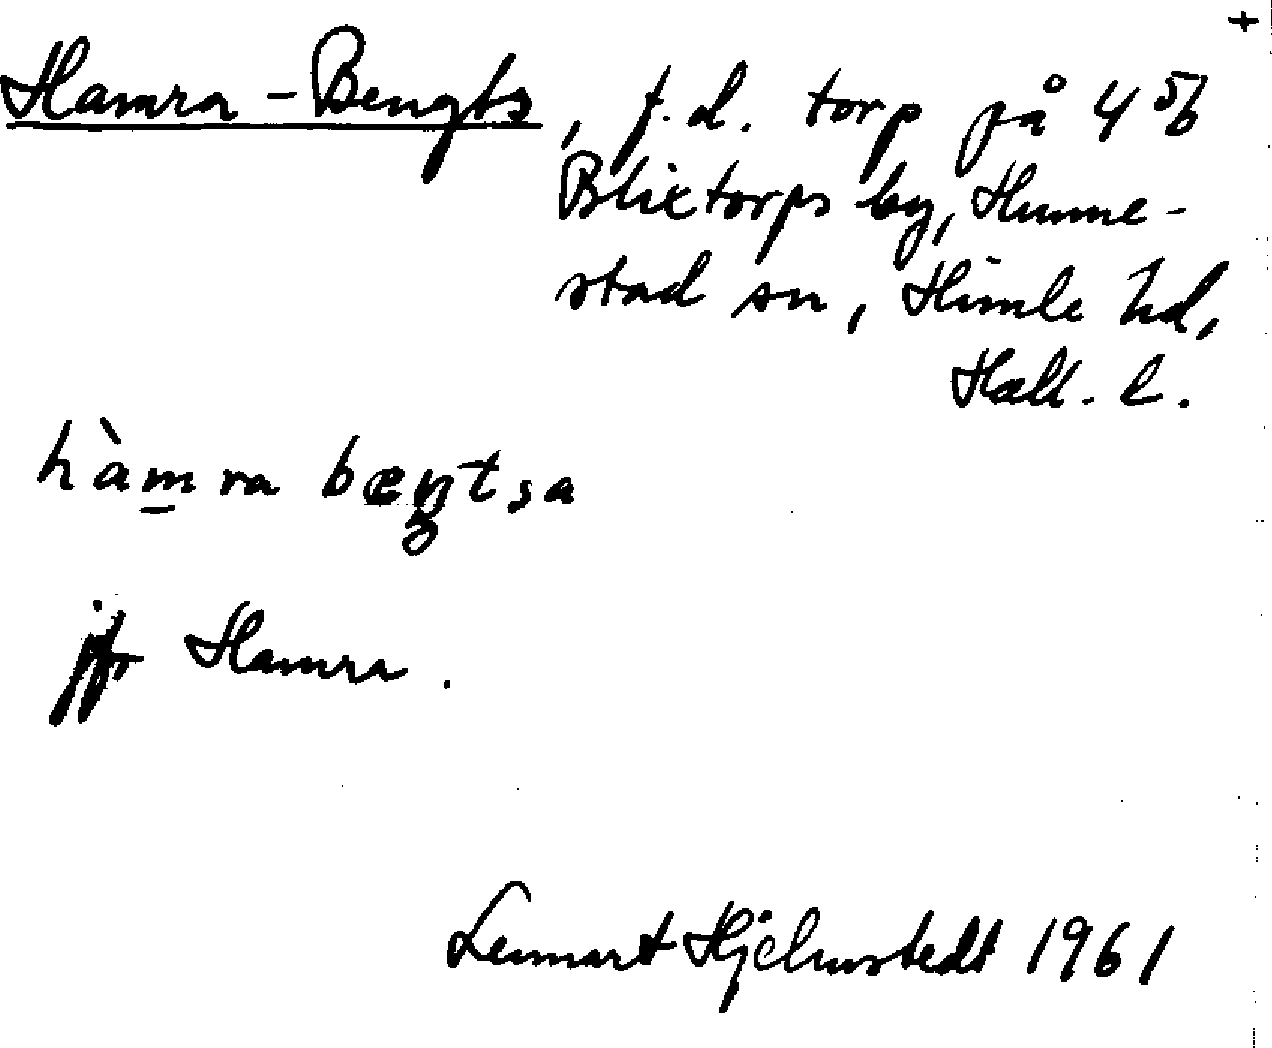 +
Hamra-Bengts, f.d. torp på 4 56
Blixtorps by, Hunne-
stad sn, Himle hd,
Hall. l.
hàm̲ra bæŋtsa
jfr Hamra.
Lennart Hjelmstedt 1961